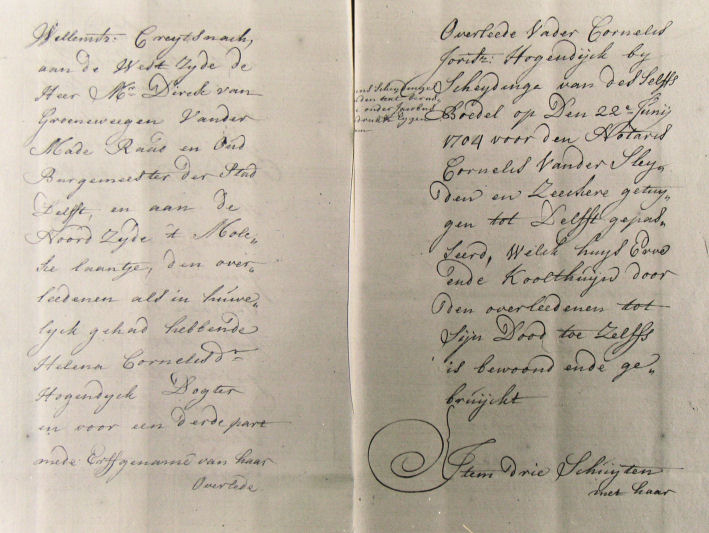 Willemsz: Creytsnach,
aan de West Zyde de
Heer Mr. Dirck van
Groeneweegen Vander
Made Raüs en Oud
Burgemeester der Stad
Delfft, en aan de
Noord Zyde 't Mole„
sie laantje, den over„
leedenen als in huwe„
lyck gehad hebbende
Helena Cornelisdr
Hogendyck Dogter
en voor een derde part
mede Erffgename van haar
Overlede
Overleede Vader Cornelis
Jorisz: Hogendijck by
Scheydinge van des Selffs
Boedel op Den 22e Junij
1704 voor den Notaris
Cornelis Vander Sley„
den en Zeeckere getuy„
gen tot Delfft gepas„
seerd, Welck huys Erve
ende Koolthuyn door
den overleedenen tot
Sijn Dood toe Zelffs
is bewoond ende ge„
bruijckt
Item drie Schuyten
met haar